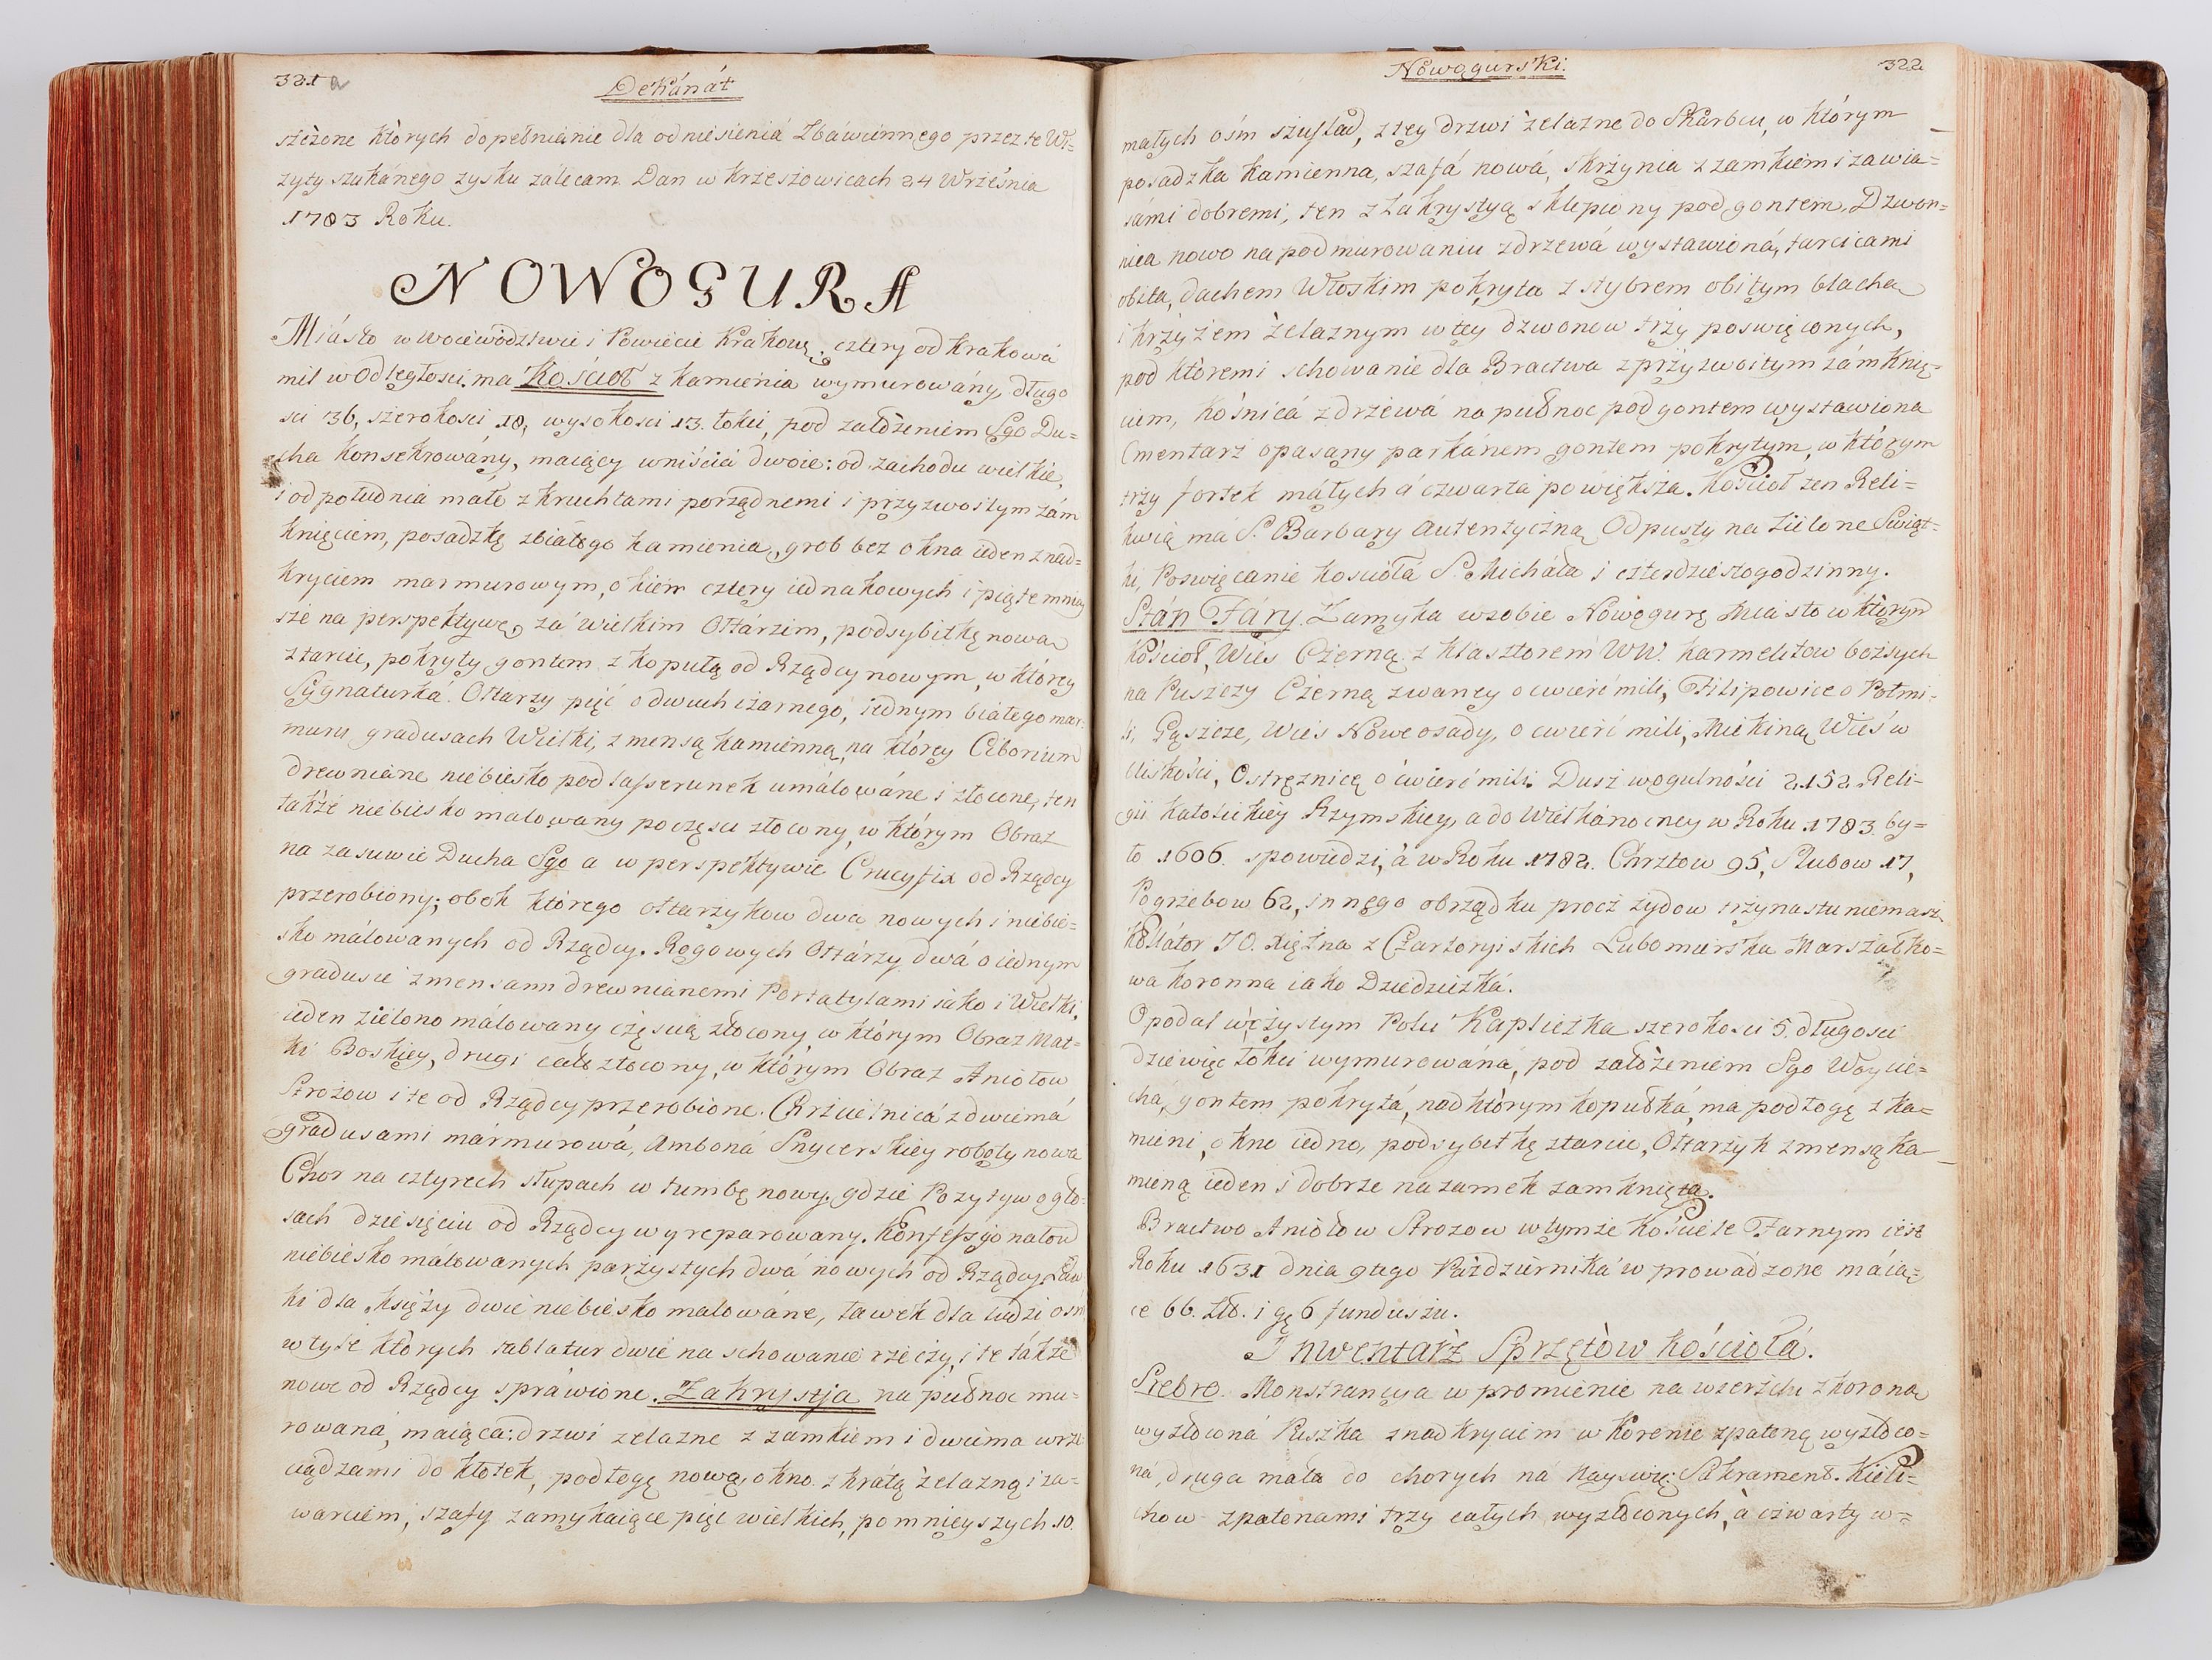 321 a
Dekánát
szczone których dopełnienie dla odniesieniá Zbáwiennego przez te Wi=
zyty szukánego zysku zálecam Dan w Krzeszowicach 24 Września
1783 Roku.
NOWOGURA
Miásto w Woiewodztwie i Powiecie Krakows. cztery od Krakowá
mil w Odległosci, ma Kościoł z kamienia wymurowany, długo
sci 36, szerokosci 18, wysokosci 13. łokci, pod założeniem Sgo Du=
cha konsekrowány, maiący wniścia dwoie: od zachodu wielkie,
i od południa małe z kruchtami porządnemi i przyzwoitym zám
knięciem, posadzkę z białego kamienia, grob bez okna ieden z nad=
kryciem marmurowym, okien cztery iednakowych i piąte mniey
sze na perspektywę, zá wielkim Ołtárzem, podsybitkę nową
z tarcic, pokryty gontem z kopułą od Rządcy nowym, w którey
Sygnaturka. Ołtarzy pięć o dwuch czarnego, iednym białego mar=
muru gradusach Wielki, z mensą kamienną, na którey Ciborium
drewniane niebiesko pod laſserunek umálowáne i złocone, ten
także niebiesko malowany poczęsci złocony, w którym Obraz
na zasuwie Ducha Sgo a w perspektywie Crucyfix od Rządcy
przerobiony; obok którego ołtarzykow dwa nowych i niebie=
sko málowanych od Rządcy. Rogowych Ołtárzy dwá o iednym
gradusie z mensami drewnianemi Portatylami iako i Wielki,
ieden zielono málowany częscią złocony, w którym Obraz Mat=
ki Boskiey, drugi cało złocony, w którym Obraz Aniołow
Strożow i te od Rządcy przerobione. Chrzcielnicá z dwiemá
gradusami mármurowá, Amboná Snycerskiey roboty nowa
Chor na cztyrech słupach w tumbę nowy, gdzie Pozytyw o gło=
sach dziesięciu od Rządcy wyreparowany. Konfeſsyonałow
niebiesko málowanych parzystych dwá nowych od Rządcy, Ław
ki dla księży dwie niebiesko malowáne, ławek dla ludzi osm
w tyle których tablatur dwie na schowanie rzeczy, i te także
nowe od Rządcy spráwione. Zakrystja na pułnoc mu=
rowaná, maiąca: drzwi zelazne z zamkiem i dwiema wrze
ciądzami do kłotek, podłogę nową, okno z krátą żelazną i za=
warciem, szafy zamykaiące pięć wielkich, pomnieyszych 10.
Nowogurski.
322
małych ośm szuflad, z tey drzwi żelazne do Skarbcu, w którym
posadzka kamienna, szafá nowá, skrzynia z zamkiem i zawia=
sámi dobremi, ten z Zakrystyą sklepiony pod gontem. Dzwon=
nica nowo na podmurowaniu z drzewá wystawioná, tarcicami
obita, dachem Włoskim pokryta z stybrem obitym blachą
i krzyżem żelaznym w tey dzwonow trzy poswięconych,
pod któremi schowanie dla Bractwa z przyzwoitym zámknię=
ciem, kośnicá z drzewá na pułnoc pod gontem wystawiona
Cmentarz opasany parkánem gontem pokrytym, w którym
trzy fortek máłych á czwarta powiększa. Kościoł ten Reli=
kwią má S. Barbary Autentyczną, Odpusty na Zielone Swiąt=
ki, Poswięcanie kościołá S. Michała i czterdziestogodzinny.
Stán Fáry. Zamyka w sobie Nowogurę Miasto w którym
Kościoł, Wieś Czerną z klasztorem WW. Karmelitow bosych
na Puszczy Czerną zwaney o cwierć mili, Filipowice o Połmi=
li, Pąszcze, Wies Nowe osady, o cwierć mili, Miękinią Wieś w
bliskości, Ostrężnicę o ćwierć mili. Dusz wogulności 2152. Reli=
gii katolickiey Rzymskiey, a do Wielkánocney w Roku 1783. by=
ło 1606. spowiedzi, á w Roku 1782. Chrztow 95, Slubow 17,
Pogrzebow 62, innego obrządku procz żydow trzynastu niemasz
Kollátor JO. Xiężna z Czartoryiskich Lubomirska Marszałko=
wa Koronna iako Dziedziczká.
Opodal w czystym Polu Kapliczka szerokosci 5. długosci
dziewięć łokci wymurowáná, pod założeniem Sgo Woycie=
cha, gontem pokrytá, nad którym kopułká, ma podłogę z ka=
mieni, okno iedno, podsybitkę z tarcic, Ołtarzyk z mensą ka=
mieną ieden i dobrze na zamek zamknięta.
Bractwo Aniołow Strozow w tymże Kościele Farnym iest
Roku 1631 dnia 9tego Páździerniká wprowadzone máią=
ce 66. Zł. i g. 6 funduszu.
Inwentarz Sprzętow Kościołá.
Srebro. Monstrancya w promienie na wierzchu z koroną
wyzłoconá Puszka z nadkryciem w Korenie z pateną wyzłoco=
ná, druga mała do chorych ná Nayswię: Sakrament. Kieli=
chow z patenami trzy całych wyzłoconych, à czwarty w=